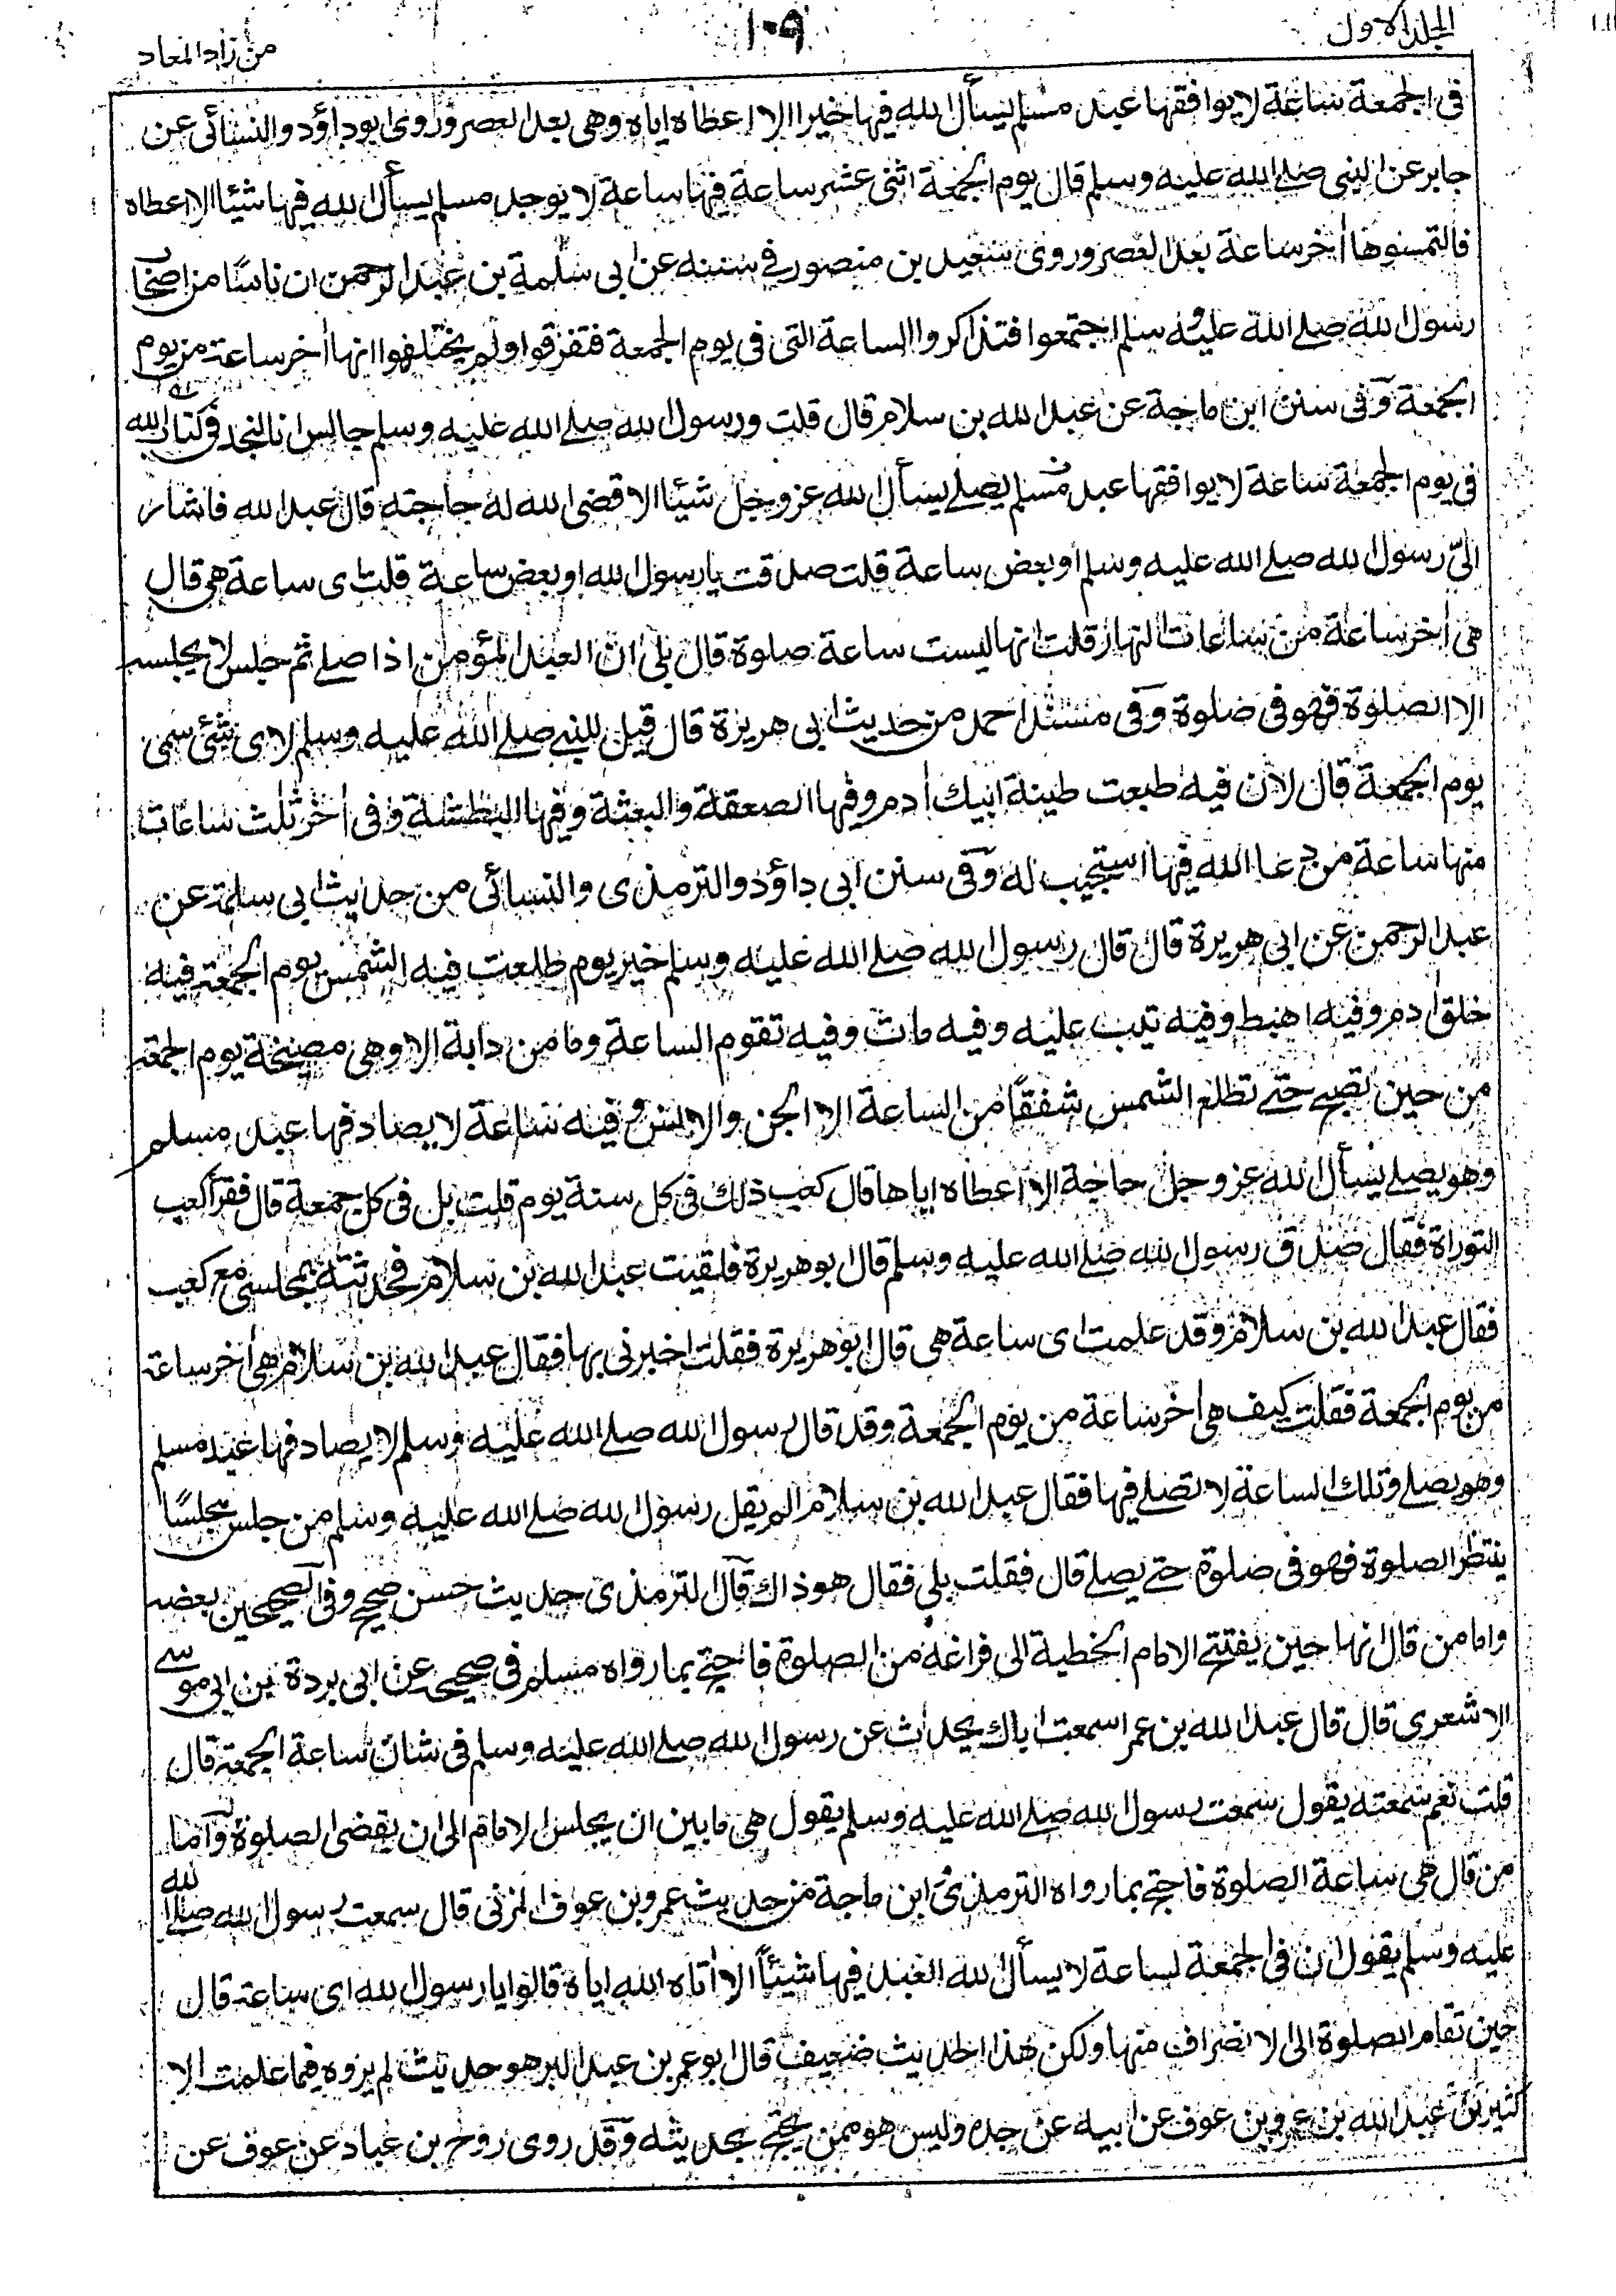 المجلد الاول
١٠٩
من زاد المعاد
فى الجمعة ساعة لا يوافقها عبد مسلم يسأل الله فيها خيرا الا اعطاه اياه وهى بعد العصر وروى ابو داؤد والنسائى عن
جابر عن النبى صلے الله عليه وسلم قال يوم الجمعة اثنى عشر ساعة فيها ساعة لا يوجد مسلم يسأل الله فيها شيئا الا اعطاه
فالتمسوها أخر ساعة بعد العصر وروى سعيد بن منصور فے سننه عن ابى سلمة بن عبد الرحمن ان ناسًا من اصحاب
رسول الله صلے الله عليه وسلم اجتمعوا فتذاكروا الساعة التى فى يوم الجمعة فتفرقوا ولم يختلفوا انها أخر ساعة من يوم
الجمعة وفى سنن ابن ماجة عن عبد الله بن سلام قال قلت ورسول الله صلے الله عليه وسلم جالس انا لنجد فى كتاب الله
فى يوم الجمعة ساعة لا يوافقها عبد مسلم يصلے يسأل الله عز وجل شيئا الا قضى الله له حاجته قال عبد الله فاشار
الىّ رسول الله صلے الله عليه وسلم أو بعض ساعة قلت صدقت يا رسول الله او بعض ساعة قلت اى ساعة هى قال
هى أخر ساعة من ساعات النهار قلت انها ليست ساعة صلوة قال بلى ان العبد المؤمن اذا صلے ثم جلس لا يجلسه
الا الصلوة فهو فى صلوة وفى مسند احمد من حديث ابى هريرة قال قيل للنبے صلے الله عليه وسلم لاى شئ سمى
يوم الجمعة قال لان فيه طبعت طينة ابيك أدم وفيها الصعقة والبعثة وفيها البطشة وفى أخر ثلث ساعات
منها ساعة من دعا الله فيها استجيب له وفى سنن ابى داؤد والترمذى والنسائى من حديث ابى سلمة عن
عبد الرحمن عن ابى هريرة قال قال رسول الله صلے الله عليه وسلم خير يوم طلعت فيه الشمس يوم الجمعة فيه
خلق أدم وفيه اهبط وفيه تيب عليه وفيه مات وفيه تقوم الساعة وما من دابة الا وهى مصيخة يوم الجمعة
من حين تصبح حتے تطلع الشمس شفقًا من الساعة الا الجن والانس وفيه ساعة لا يصادفها عبد مسلم
وهو يصلے يسأل الله عز وجل حاجة الا اعطاه اياها قال كعب ذلك فى كل سنة يوم قلت بل فى كل جمعة قال فقرأ كعب
التوراة فقال صدق رسول الله صلے الله عليه وسلم قال ابو هريرة فلقيت عبد الله بن سلام فحدثته بمجلسى مع كعب
فقال عبد الله بن سلام وقد علمت اى ساعة هى قال ابو هريرة فقلت اخبرنى بها فقال عبد الله بن سلام هى أخر ساعة
من يوم الجمعة فقلت كيف هى أخر ساعة من يوم الجمعة وقد قال رسول الله صلے الله عليه وسلم لا يصادفها عبد مسلم
وهو يصلے وتلك الساعة لا تصلے فيها فقال عبد الله بن سلام الم يقل رسول الله صلے الله عليه وسلم من جلس مجلسًا
ينتظر الصلوة فهو فى صلوة حتے يصلے قال فقلت بلى فقال هو ذاك قال الترمذى حديث حسن صحيح وفى الصحيحين بعضه
واما من قال انها حين يفتتح الامام الخطبة الى فراغه من الصلوة فاحتج بما رواه مسلم فى صحيحه عن ابى بردة بن ابى موسے
الاشعرى قال قال عبد الله بن عمر اسمعت اباك يحدث عن رسول الله صلے الله عليه وسلم فى شان ساعة الجمعة قال
قلت نعم سمعته يقول سمعت رسول الله صلے الله عليه وسلم يقول هى ما بين ان يجلس الامام الى ان يقضى الصلوة واما
من قال هى ساعة الصلوة فاحتج بما رواه الترمذى ابن ماجة من حديث عمرو بن عوف المزنى قال سمعت رسول الله صلے الله
عليه وسلم يقول ان فى الجمعة لساعة لا يسأل الله العبد فيها شيئًا الا أتاه الله اياه قالوا يا رسول الله اى ساعة قال
حين تقام الصلوة الى الانصراف منها ولكن هذا الحديث ضعيف قال ابو عمر بن عبد البر هو حديث لم يروه فيما علمت الا
كثير بن عبد الله بن عمرو بن عوف عن ابيه عن جده وليس هو ممن يحتج بحديثه وقد روى روح بن عباد عن عوف عن